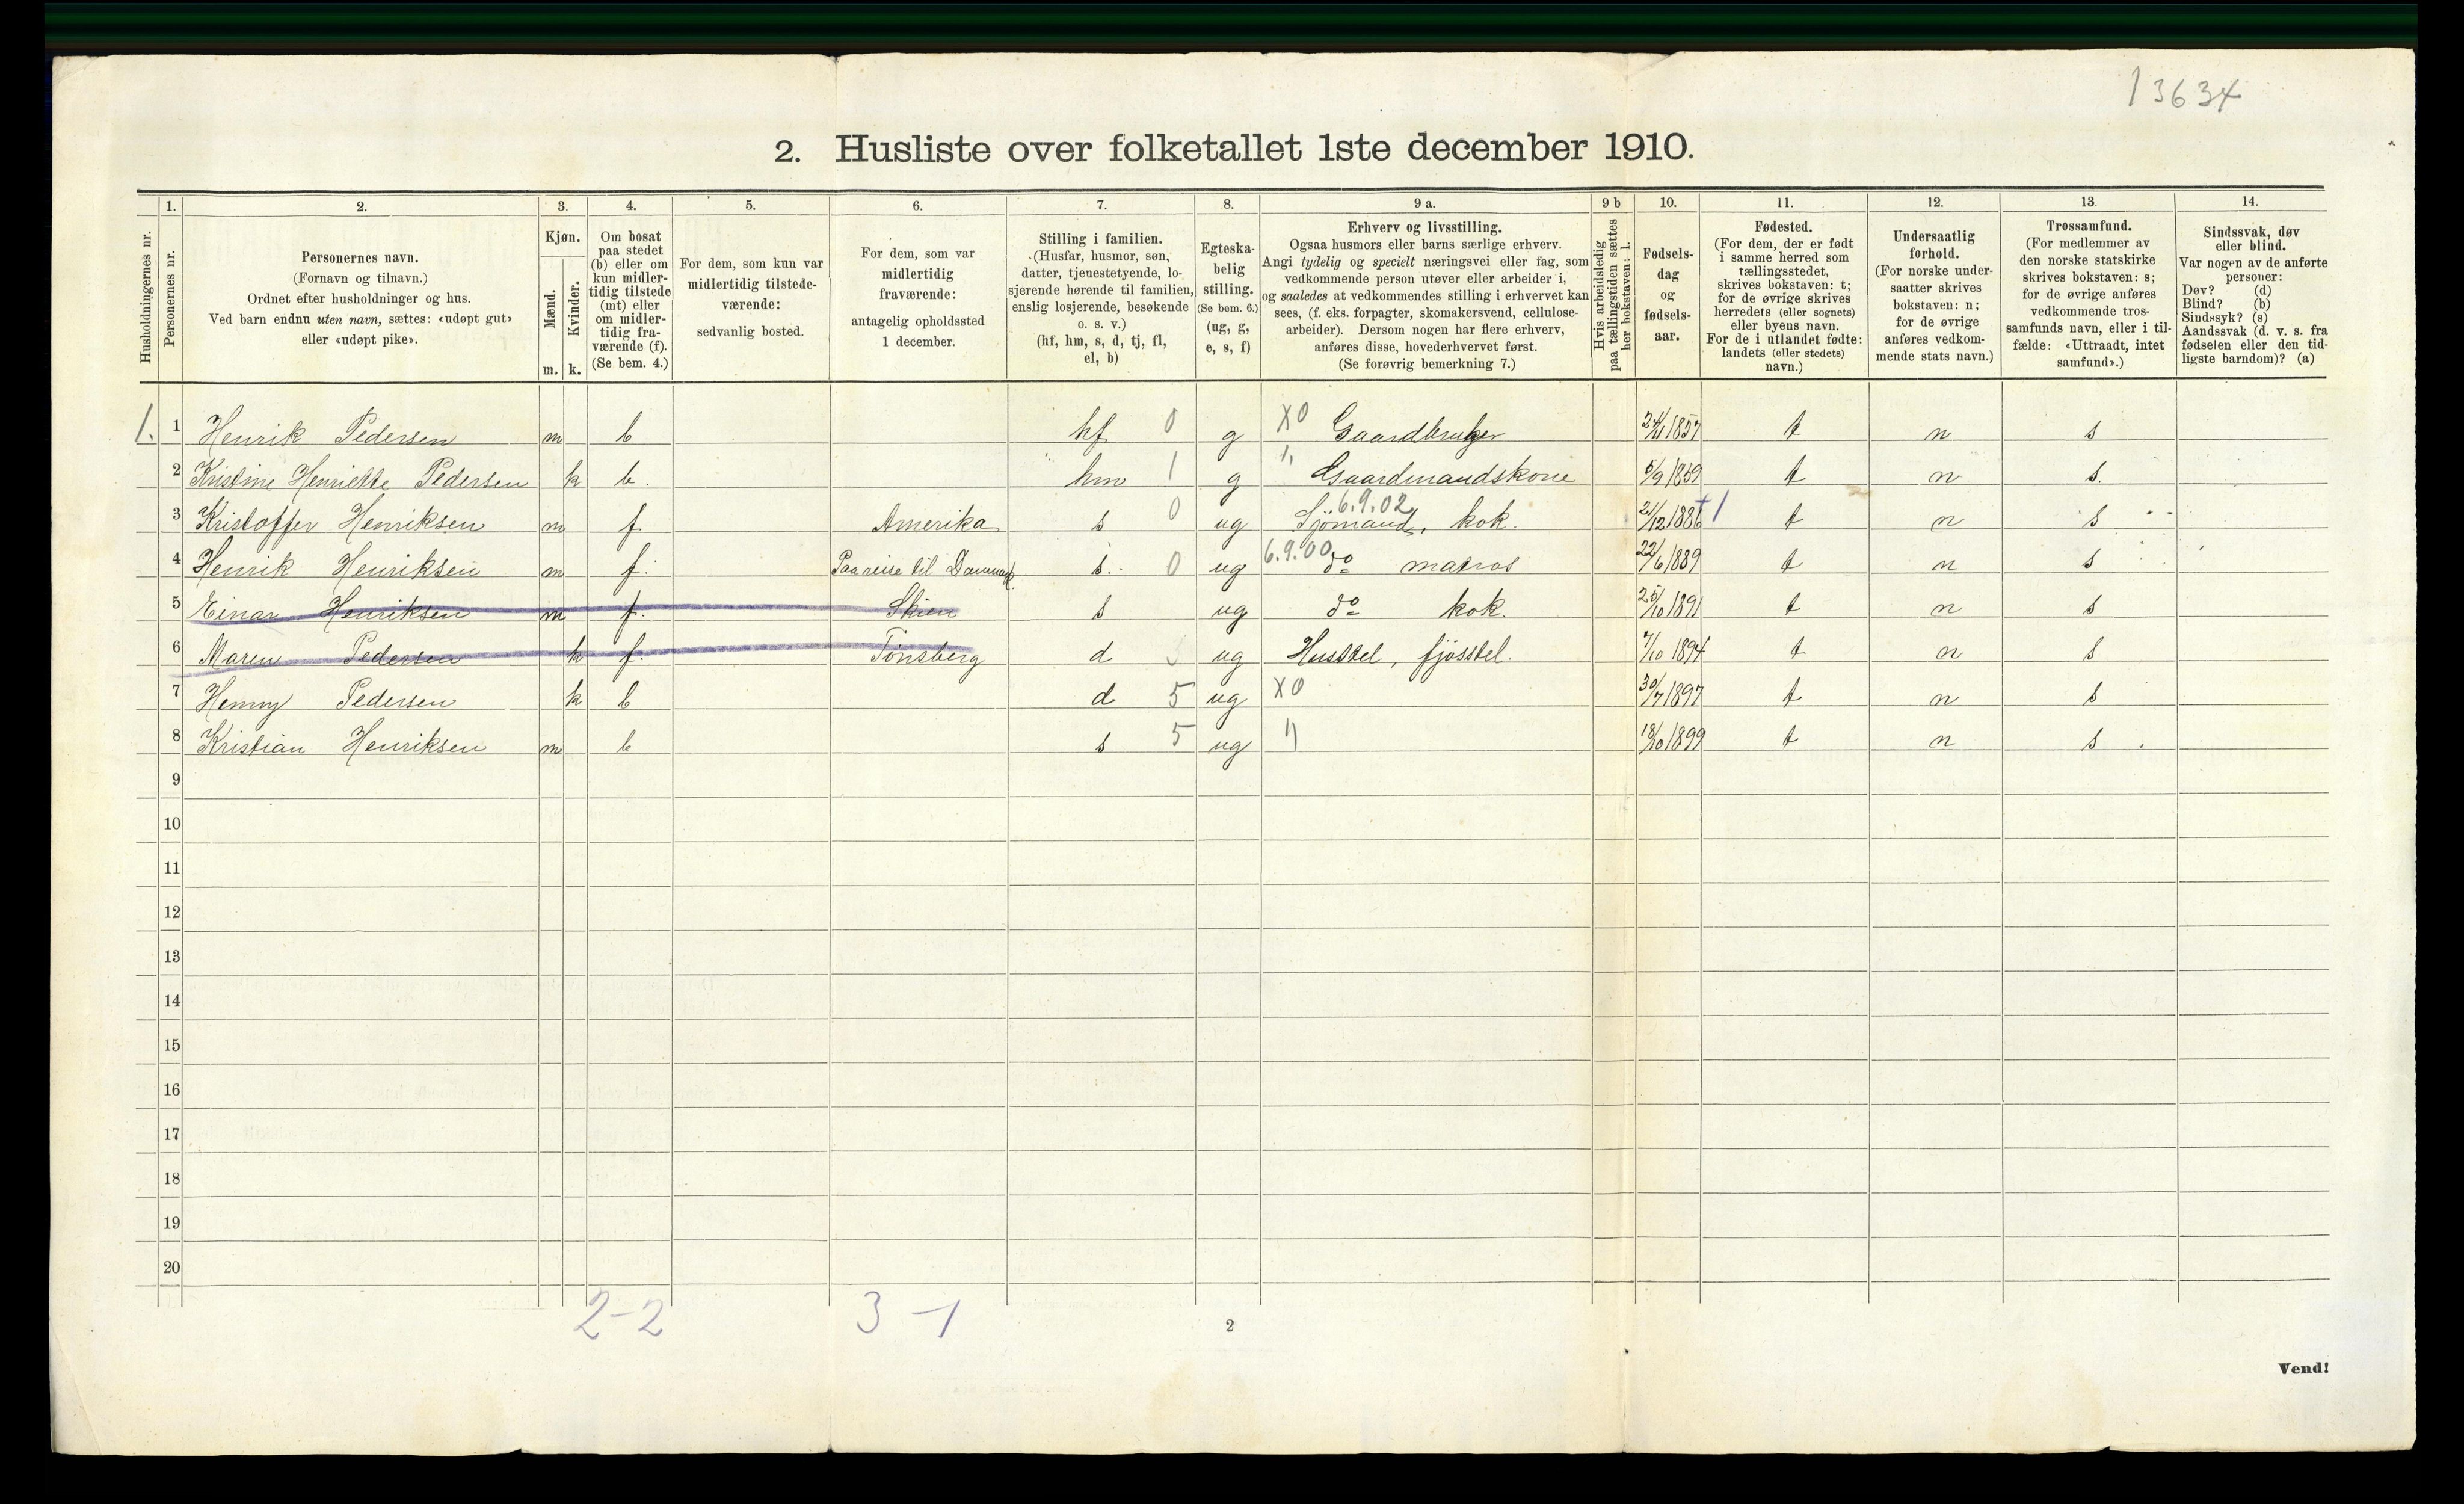 13634
2. Husliste over folketallet 1ste december 1910.
Husholdningernes nr.
1.
Personernes nr.
2.
Personernes navn.
(Fornavn og tilnavn.)
Ordnet efter husholdninger og hus.
Ved barn endnu uten navn, sættes: «udøpt gut»
eller «udøpt pike».
3.
Kjøn.
Mænd.
Kvinder.
m. k.
4.
Om bosat
paa stedet
(b) eller om
kun midler-
tidig tilstede
(mt) eller
om midler-
tidig fra-
værende (f).
(Se bem. 4.)
5.
For dem, som kun var
midlertidig tilstede-
værende:
sedvanlig bosted.
6.
For dem, som var
midlertidig
fraværende:
antagelig opholdssted
1 december.
7.
Stilling i familien.
(Husfar, husmor, søn,
datter, tjenestetyende, lo-
sjerende hørende til familien,
enslig losjerende, besøkende
o. s. v.)
(hf, hm, s, d, tj, fl,
el, b)
8.
Egteska-
belig
stilling.
(Se bem. 6.)
(ug, g,
e, s, f)
9 a.
Erhverv og livsstilling.
Ogsaa husmors eller barns særlige erhverv.
Angi tydelig og specielt næringsvei eller fag, som
vedkommende person utøver eller arbeider i,
og saaledes at vedkommendes stilling i erhvervet kan
sees, (f. eks. forpagter, skomakersvend, cellulose-
arbeider). Dersom nogen har flere erhverv,
anføres disse, hovederhvervet først.
(Se forøvrig bemerkning 7.)
9 b
Hvis arbeidsledig
paa tællingstiden sættes
her bokstaven: l.
10.
Fødsels-
dag
og
fødsels-
aar.
11.
Fødested.
(For dem, der er født
i samme herred som
tællingsstedet,
skrives bokstaven: t;
for de øvrige skrives
herredets (eller sognets)
eller byens navn.
For de i utlandet fødte:
landets (eller stedets)
navn.)
12.
Undersaatlig
forhold.
(For norske under-
saatter skrives
bokstaven: n;
for de øvrige
anføres vedkom-
mende stats navn.)
13.
Trossamfund.
(For medlemmer av
den norske statskirke
skrives bokstaven: s;
for de øvrige anføres
vedkommende tros-
samfunds navn, eller i til-
fælde: «Uttraadt, intet
samfund».)
14.
Sindssvak, døv
eller blind.
Var nogen av de anførte
personer:
Døv? (d)
Blind? (b)
Sindssyk? (s)
Aandssvak (d. v. s. fra
fødselen eller den tid-
ligste barndom)? (a)
1. 1 Henrik Pedersen m b hf 0 g X0 Gaardbruker 24/1 1857 t n s
2 Kristine Henriette Pedersen k b. hm 1 g " Gaardmandskone 5/9 1859 t n s.
3 Kristoffer Henriksen m f Amerika s 0 ug 6.9.02 Sjømand, kok. 21/12 1886 +1 t n s
4 Henrik Henriksen m f. Paa reise til Danmark s. 0 ug 6.9.00 do matros 22/6 1889 t n s
5 Einar Henriksen m f. Skien s ug do kok. 25/10 1891 t n s
6 Maren Pedersen k f. Tønsberg d ug Husstel, fjøsstel. 7/10 1894 t n s
7 Henny Pedersen k b d 5 ug X0 30/7 1897 t n s
8 Kristian Henriksen m b s 5 ug " 18/10 1899 t n s.
9
10
11
12
13
14
15
16
17
18
19
20
2-2 3-1
2
Vend!